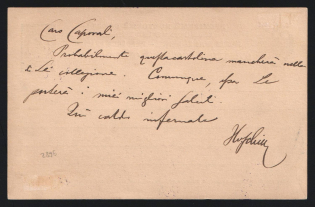 Caro Caporal,
Probabilmente questa cartolina mancherà nella
Sè collezione. Comunque, spe Le
porterà i miei migliori saluti.
Qui caldo infernale